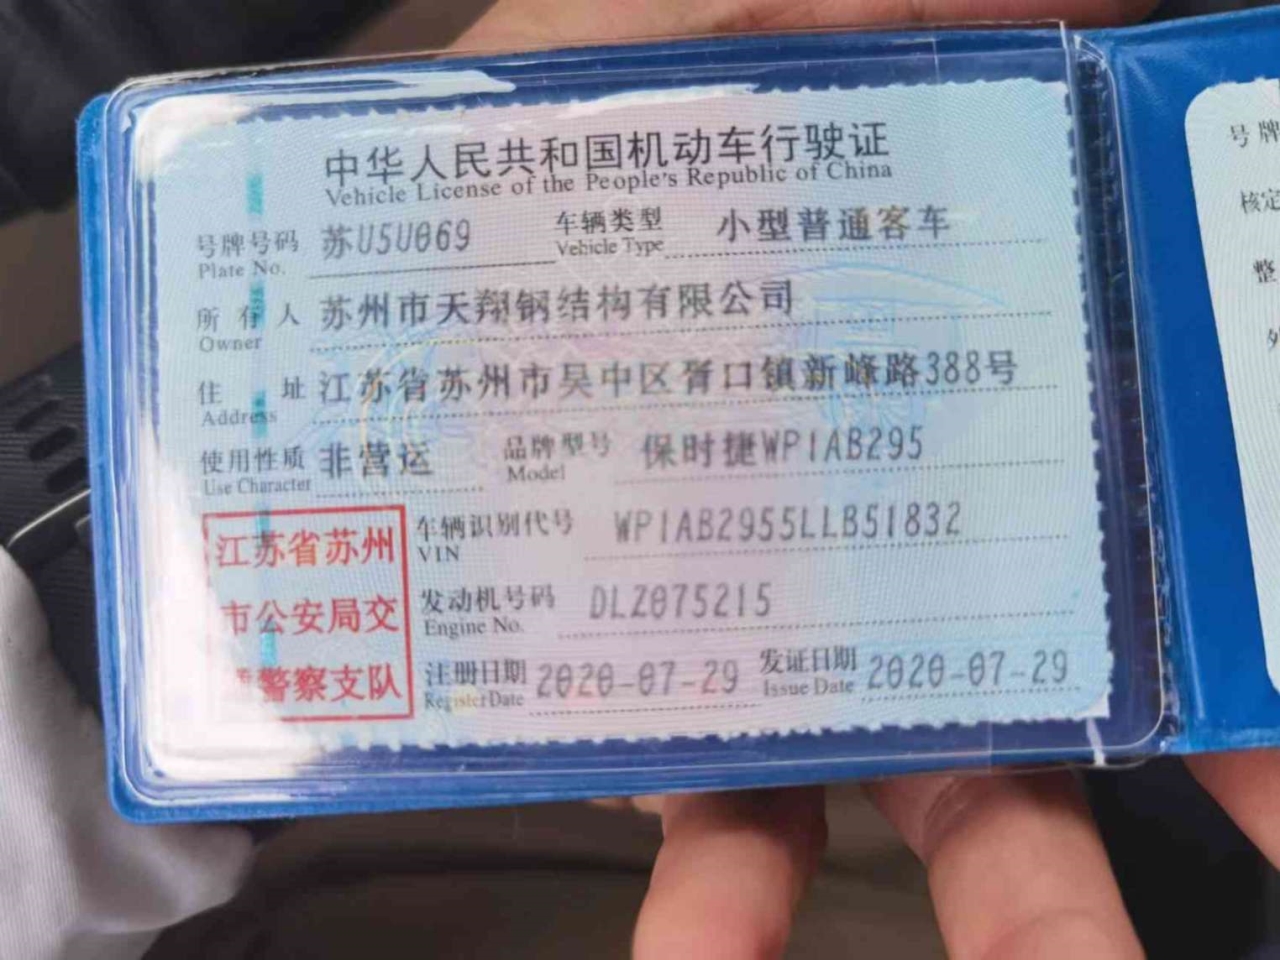 中华人民共和国机动车行驶证
Vehicle License of the People's Republic of China
号牌号码 苏U5U069 车辆类型 小型普通客车
Plate No. Vehicle Type
所有人 苏州市天翔钢结构有限公司
Owner
住址 江苏省苏州市吴中区胥口镇新峰路388号
Address
使用性质 非营运 品牌型号 保时捷WP1AB295
Use Character Model
车辆识别代号 WP1AB2955LLB51832
VIN
发动机号码 DLZ075215
Engine No.
注册日期 2020-07-29 发证日期 2020-07-29
Register Date Issue Date
江苏省苏州
市公安局交
通警察支队
号牌
核定
整
外